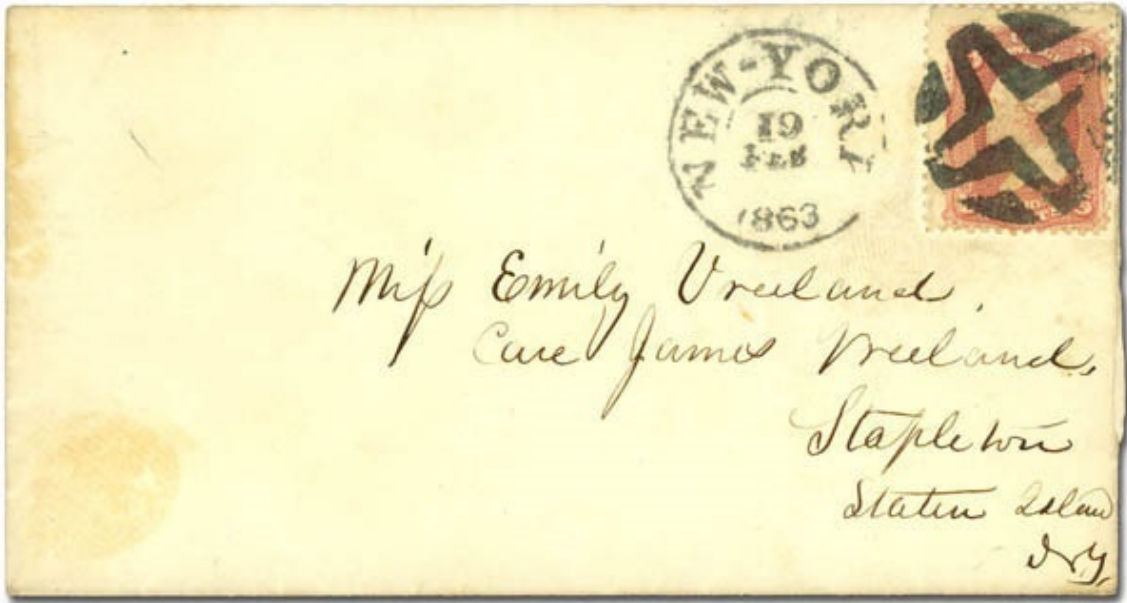 NEW-YORK
19
FEB
1863
Miss Emily Vreeland,
Care James Vreeland,
Stapleton
Staten Island
N.Y.